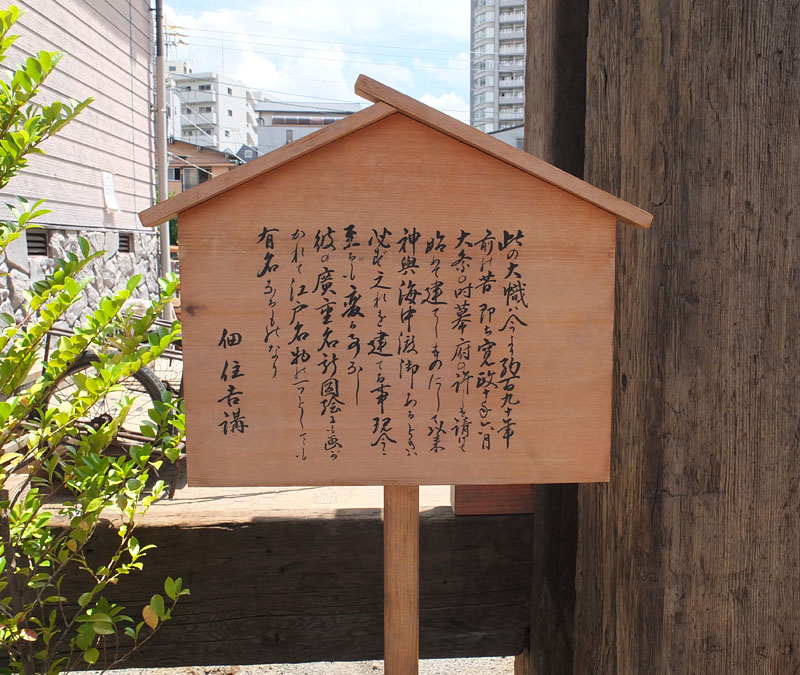 此の大幟ハ今より約百九十年
前の昔 即ち寛政十年六月
大祭の時幕府の許しを請けて
始めて建てしものにして以来
神輿海中渡御あるときハ
必ず之れを建てる事 現今ニ
至るも変る ことなし
彼の廣重名所図絵にも画が
かれて江戸名物の一つとしても
有名なるものなり
佃 住吉講